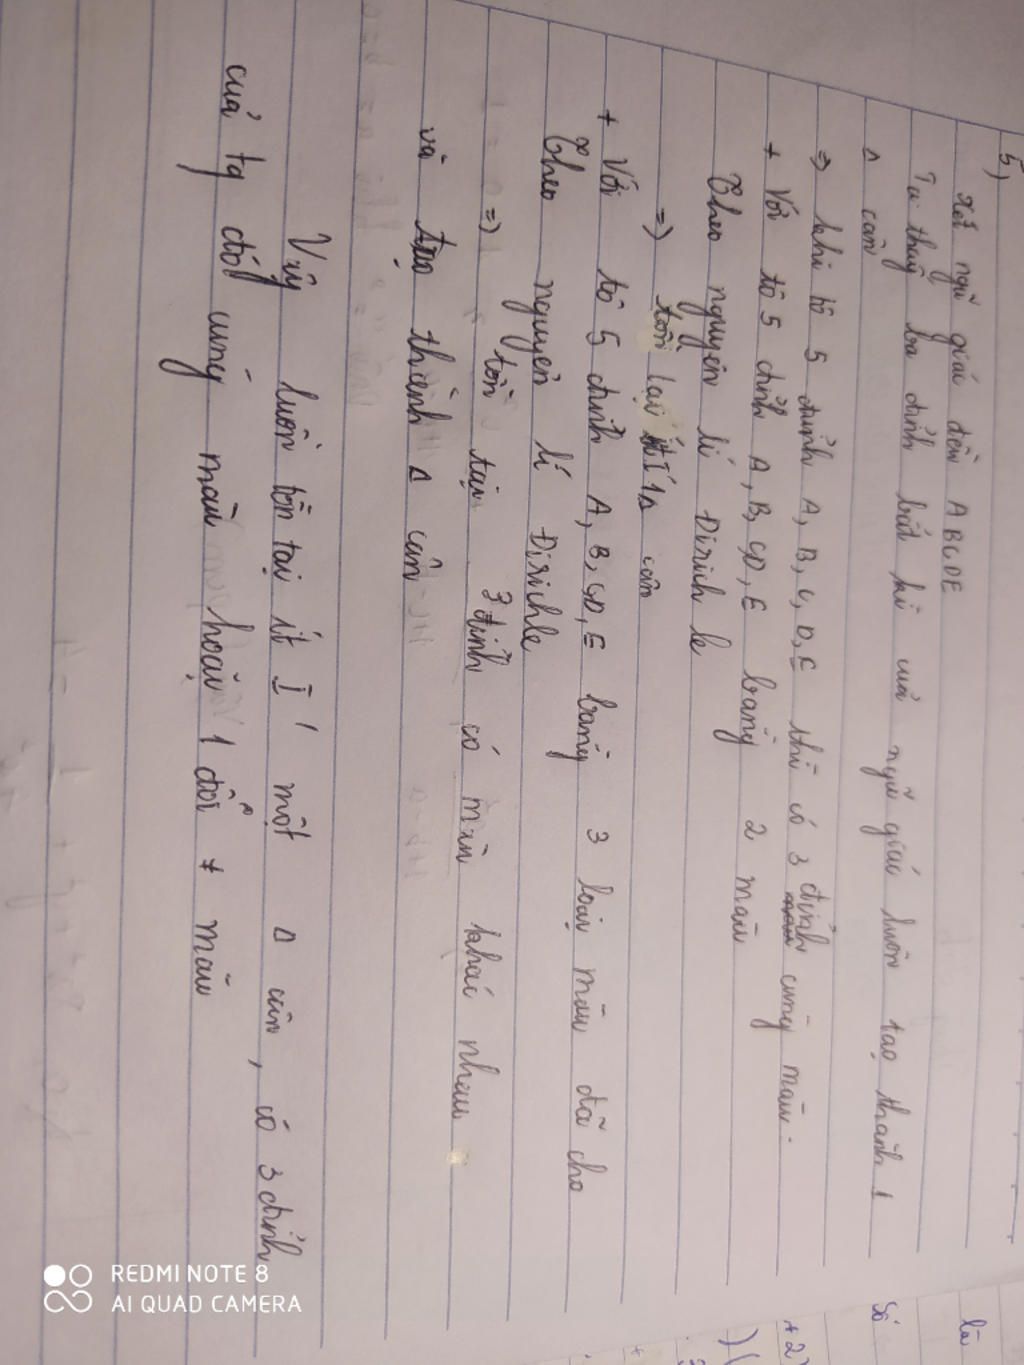 5)
Xét ngũ giác đều ABCDE
Ta thấy ba đỉnh bất kì của ngũ giác luôn tạo thành 1
Δ cân
⇒ khi tô 5 đỉnh A, B, C, D, E thì có 3 đỉnh cùng màu.
+ Với tô 5 đỉnh A, B, C, D, E bằng 2 màu
Theo nguyên lí Dirich le
⇒ tồn tại ít 1 Δ cân
+ Với tô 5 đỉnh A, B, C, D, E bằng 3 loại màu đã cho
Theo nguyên lí Dirichle
⇒ tồn tại 3 đỉnh có màu khác nhau
và tạo thành Δ cân
Vậy luôn tồn tại ít I' một Δ cân, có 3 đỉnh
của tg đó cùng màu hoặc 1 đôi ≠ màu
là
Số
+2
REDMI NOTE 8
AI QUAD CAMERA